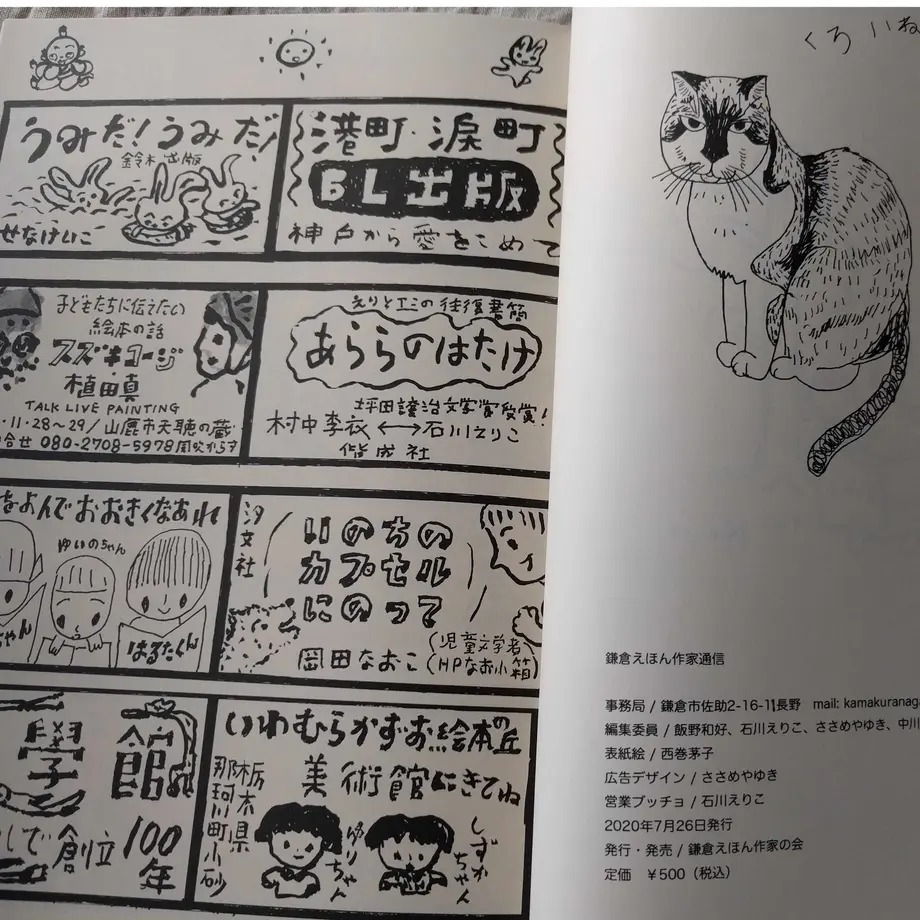 うみだ!うみだ!
鈴木出版
せなけいこ
港町・涙町
BL出版
神戸から愛をこめて
子どもたちに伝えたい
絵本の話
スズキコージ
・
植田真
TALK LIVE PAINTING
・11・28〜29/山鹿市天聴の蔵・
合せ 080-2708-5978
えりとエミの往復書簡
あららのはたけ
坪田譲治文学賞受賞!
村中李衣⟷石川えりこ
偕成社
をよんでおおきくなあれ
ゆいのちゃん
ちゃん
はるたくん
汐文社
いのちの
カプセル
にのって
岡田なおこ
(児童文学者)
(HPなお小箱)
學館
しで創立100年
いわむらかずお絵本の丘
美術館にきてね
栃木県
那珂川町小砂
ゆりちゃん
しずかちゃん
くろいね
鎌倉えほん作家通信
事務局 / 鎌倉市佐助2-16-11長野 mail: kamakuranaga
編集委員 / 飯野和好、石川えりこ、ささめやゆき、中川
表紙絵 / 西巻茅子
広告デザイン / ささめやゆき
営業ブッチョ / 石川えりこ
2020年7月26日発行
発行・発売 / 鎌倉えほん作家の会
定価 ¥500(税込)